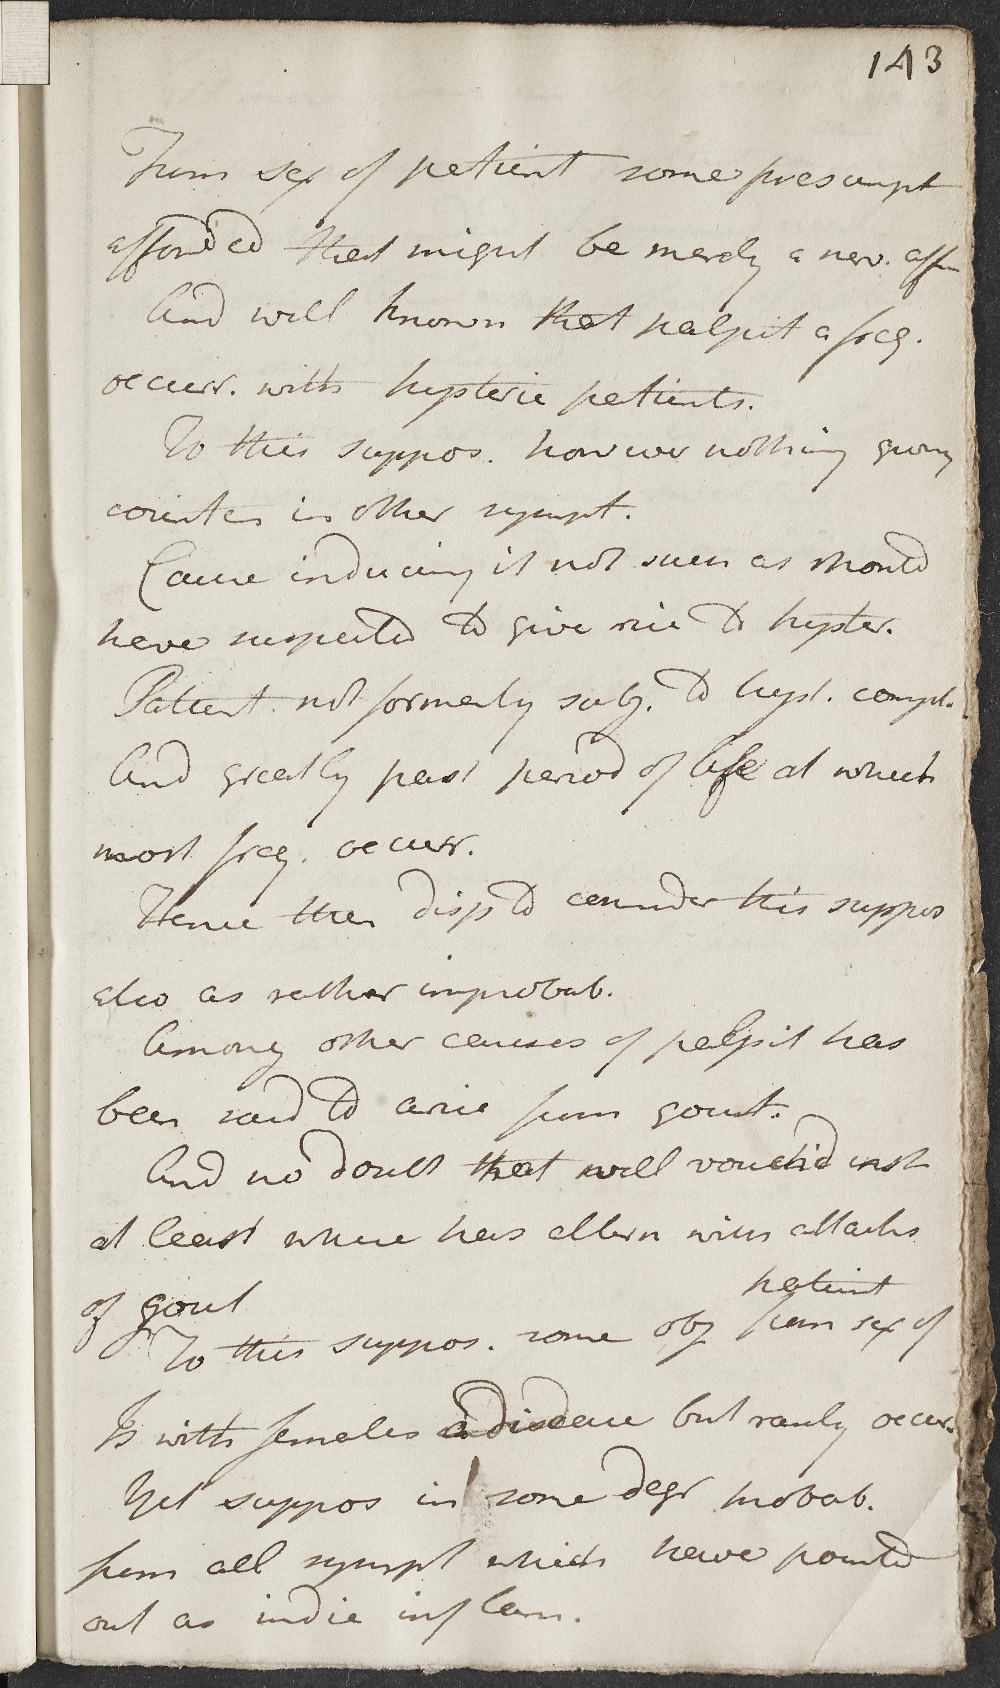 143
From sex of patient some presumpt
afforded that might be merely a nerv. affn
And well known that palpit a freq.
occurr. with hysteric patients.
To this suppos. however nothing giving
counten in other sympt.
Cause inducing it not such as should
have suspected to give rise to hyster.
Patient not formerly subj. to hyst. compl.
And greatly past period of life at which
most freq. occurr.
Hence then disp to consider this suppos
also as rather improbab.
Among other causes of palpit has
been said to arise from gout.
And no doubt that well vouch'd inst
at least where has altern with attacks
of gout
patient
To this suppos. some obj from sex of
Is with females a disease but rarely occur.
Yet suppos in some degr probab.
from all sympt which have pointed
out as indic inflam.